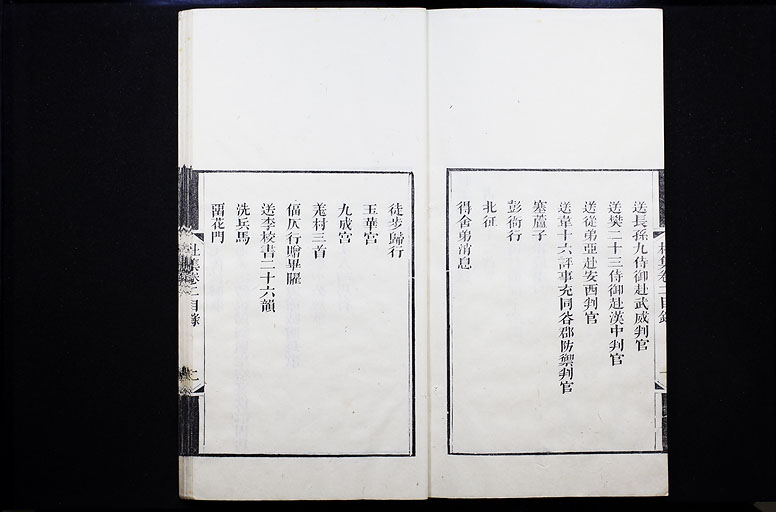 送長孫九侍御赴武威判官
送樊二十三侍御赴漢中判官
送從弟亞赴安西判官
送韋十六評事充同谷郡防禦判官
塞蘆子
彭衙行
北征
得舍弟消息
徒步歸行
玉華宮
九成宮
羌村三首
偪仄行贈畢曜
送李校書二十六韻
洗兵馬
留花門
杜集卷二目錄
二